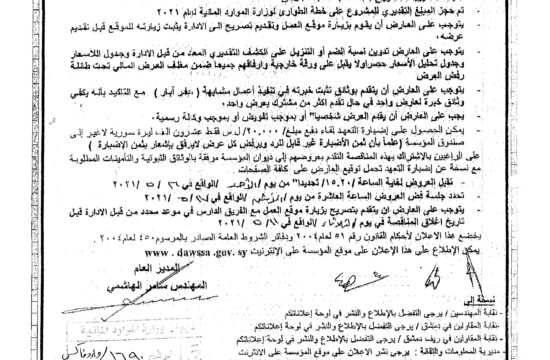 - تم حجز المبلغ التقديري للمشروع على خطة الطوارئ لوزارة الموارد المائية لعام ٢٠٢١
- يتوجب على العارض أن يقوم بزيارة موقع العمل وتقديم تصريح إلى الإدارة يثبت زيارته للموقع قبل تقديم
عرضه.
- يتوجب على العارض تدوين نسبة الضم أو التنزيل على الكشف التقديري المعد من قبل الإدارة وجدول للأسعار
وجدول تحليل الأسعار حصراً ولا يقبل على ورقة خارجية وإرفاقهم جميعا ضمن مغلف العرض المالي تحت طائلة
رفض العرض
- يتوجب على العارض أن يتقدم بوثائق تثبت خبرته في تنفيذ أعمال مشابهة (حفر آبار) مع التأكيد بأنه يكفي
وثائق خبرة لعارض واحد في حال تقدم أكثر من مشترك بعرض واحد.
- يجب على العارض أن يقدم العرض شخصياً أو بموجب تفويض أو بموجب وكالة رسمية.
- يمكن الحصول على إضبارة التعهد لقاء دفع مبلغ/٢٠,٠٠٠/ل.س فقط عشرون ألف ليرة سورية لاغير إلى
صندوق المؤسسة (علماً بأن ثمن الإضبارة غير قابل للرد ويرفض كل عرض لايرفق بإشعار بثمن الإضبارة)
على الراغبين بالاشتراك بهذه المناقصة التقدم بعروضهم إلى ديوان المؤسسة مرفقة بالوثائق الثبوتية والتأمينات المطلوبة
مع نسخة عن إضبارة التعهد تحمل توقيع العارض على كافة الصفحات.
- تقبل العروض لغاية الساعة /١٥,٣٠/ تحديداً من يوم الواقع في ٢٠٢١
- تحدد جلسة فض العروض الساعة العاشرة من يوم الواقع في ٢٠٢١
- يتوجب على العارض أن يتقدم بتصريح بزيارة موقع العمل مع الفريق الدارس في موعد محدد من قبل الإدارة قبل
تاريخ إغلاق المناقصة في يوم الواقع في ٢٠٢١
يخضع هذا الإعلان لأحكام القانون رقم ٥١ لعام ٢٠٠٤ ودفاتر الشروط العامة الصادر بالمرسوم ٤٥٠ لعام ٢٠٠٤.
يمكن الإطلاع على هذا الإعلان على موقع المؤسسة على الإنترنيت www.dawssa.gov.sy
المدير العام
المهندس سامر الهاشمي
نسخة إلى
- نقابة المهندسين / يرجى التفضل بالإطلاع والنشر في لوحة إعلاناتكم
- نقابة المقاولين في دمشق / يرجى التفضل بالإطلاع والنشر في لوحة إعلاناتكم
- نقابة المقاولين في ريف دمشق / يرجى التفضل بالإطلاع والنشر في لوحة إعلاناتكم
- مديرية المعلومات والتقانة : يرجى نشر الإعلان على موقع المؤسسة على الانترنت